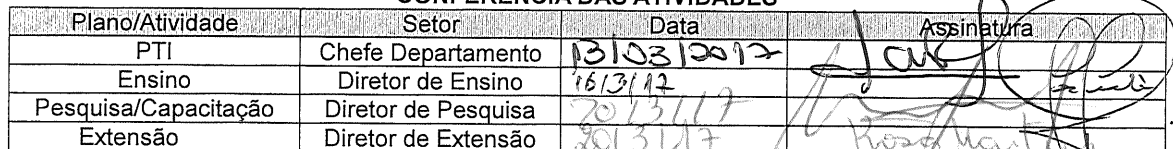 CONFERÊNCIA DAS ATIVIDADES
Plano/Atividade Setor Data Assinatura
PTI Chefe Departamento 13/03/2017
Ensino Diretor de Ensino 16/3/17
Pesquisa/Capacitação Diretor de Pesquisa 20/3/17
Extensão Diretor de Extensão 20/3/17